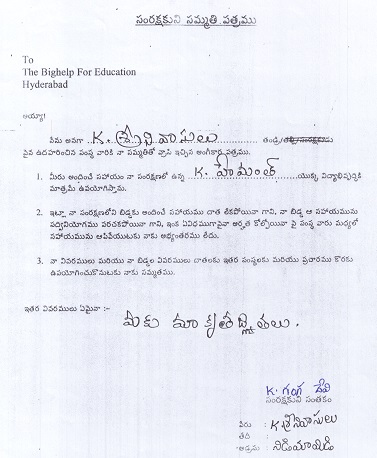 సంరక్షకుని సమ్మతి పత్రము
To
The Bighelp For Education
Hyderabad
అయ్యా!
నేను అనగా K. శ్రీనివాసులు తండ్రి/తల్లి/సంరక్షకుడు
పైన ఉదహరించిన సంస్థ వారికి నా సమ్మతితో వ్రాసి ఇచ్చిన అంగీకార పత్రము.
1. మీరు అందించే సహాయం నా సంరక్షణలో ఉన్న K. హేమంత్ యొక్క విద్యాభివృద్ధికి
మాత్రమే ఉపయోగిస్తాను.
2. ఇట్లా నా సంరక్షణలోని బిడ్డకు అందించే సహాయము దాత లేకపోయినా గాని, నా బిడ్డ ఆ సహాయమును
సద్వినియోగము పరచకపోయినా గాని, ఇంక ఏవిధముగానైనా అర్హత కోల్పోయినా పై సంస్థ వారు మధ్యలో
సహాయమును ఆపివేయుటకు నాకు అభ్యంతరము లేదు.
3. నా వివరములు మరియు నా బిడ్డల వివరములు దాతలకు ఇతర సంస్థలకు మరియు ప్రచారము కొరకు
ఉపయోగించుకొనుటకు నాకు సమ్మతము.
ఇతర వివరములు ఏమైనా :-
మీకు మా కృతజ్ఞతలు.
K. గంగ దేవి
సంరక్షకుని సంతకం
పేరు : K శ్రీనివాసులు
తేది :
అడ్రసు :